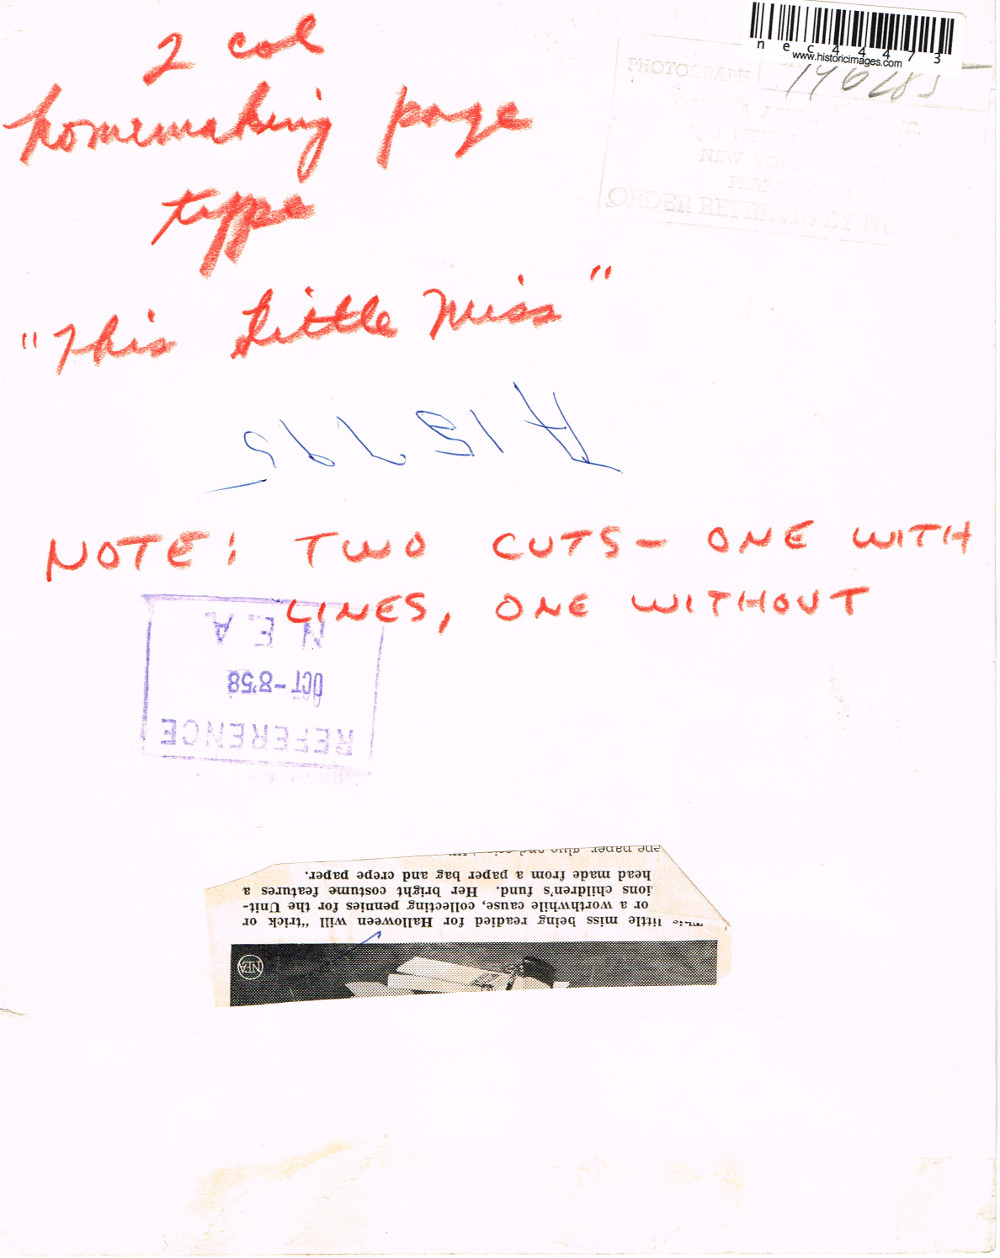 2 col
homemaking page
type
"This Little Miss"
nec44473
www.historicimages.com
PHOTOGRAPH
NEW YORK
ORDER REPRINTS BY NO.
NOTE: TWO CUTS- ONE WITH
LINES, ONE WITHOUT
REFERENCE
OCT-8'58
N.E.A.
NEA
This little miss being readied for Halloween will "trick or
or a worthwhile cause, collecting pennies for the Unit-
ions children's fund. Her bright costume features a
head made from a paper bag and crepe paper.